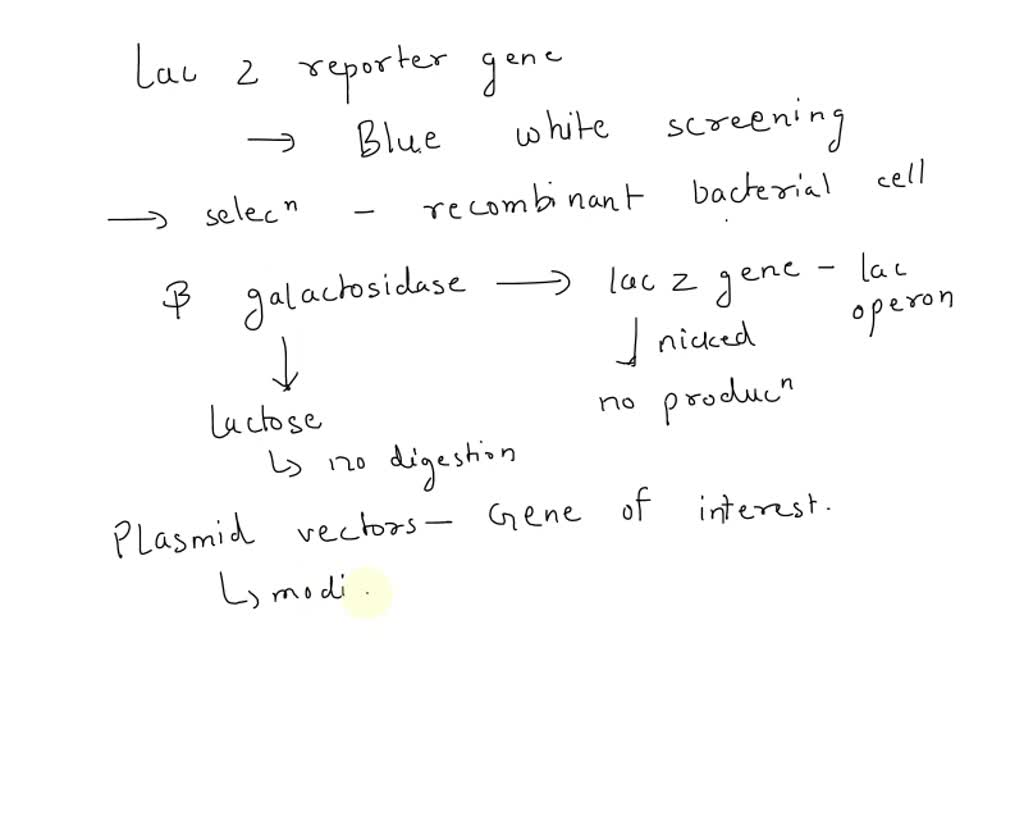 Lac z reporter gene
→ Blue white screening
→ selecⁿ - recombinant bacterial cell
β galactosidase → lac z gene - lac operon
↓ nicked
no producⁿ
↓
Lactose
↳ no digestion
Plasmid vectors - Gene of interest.
↳ modi.